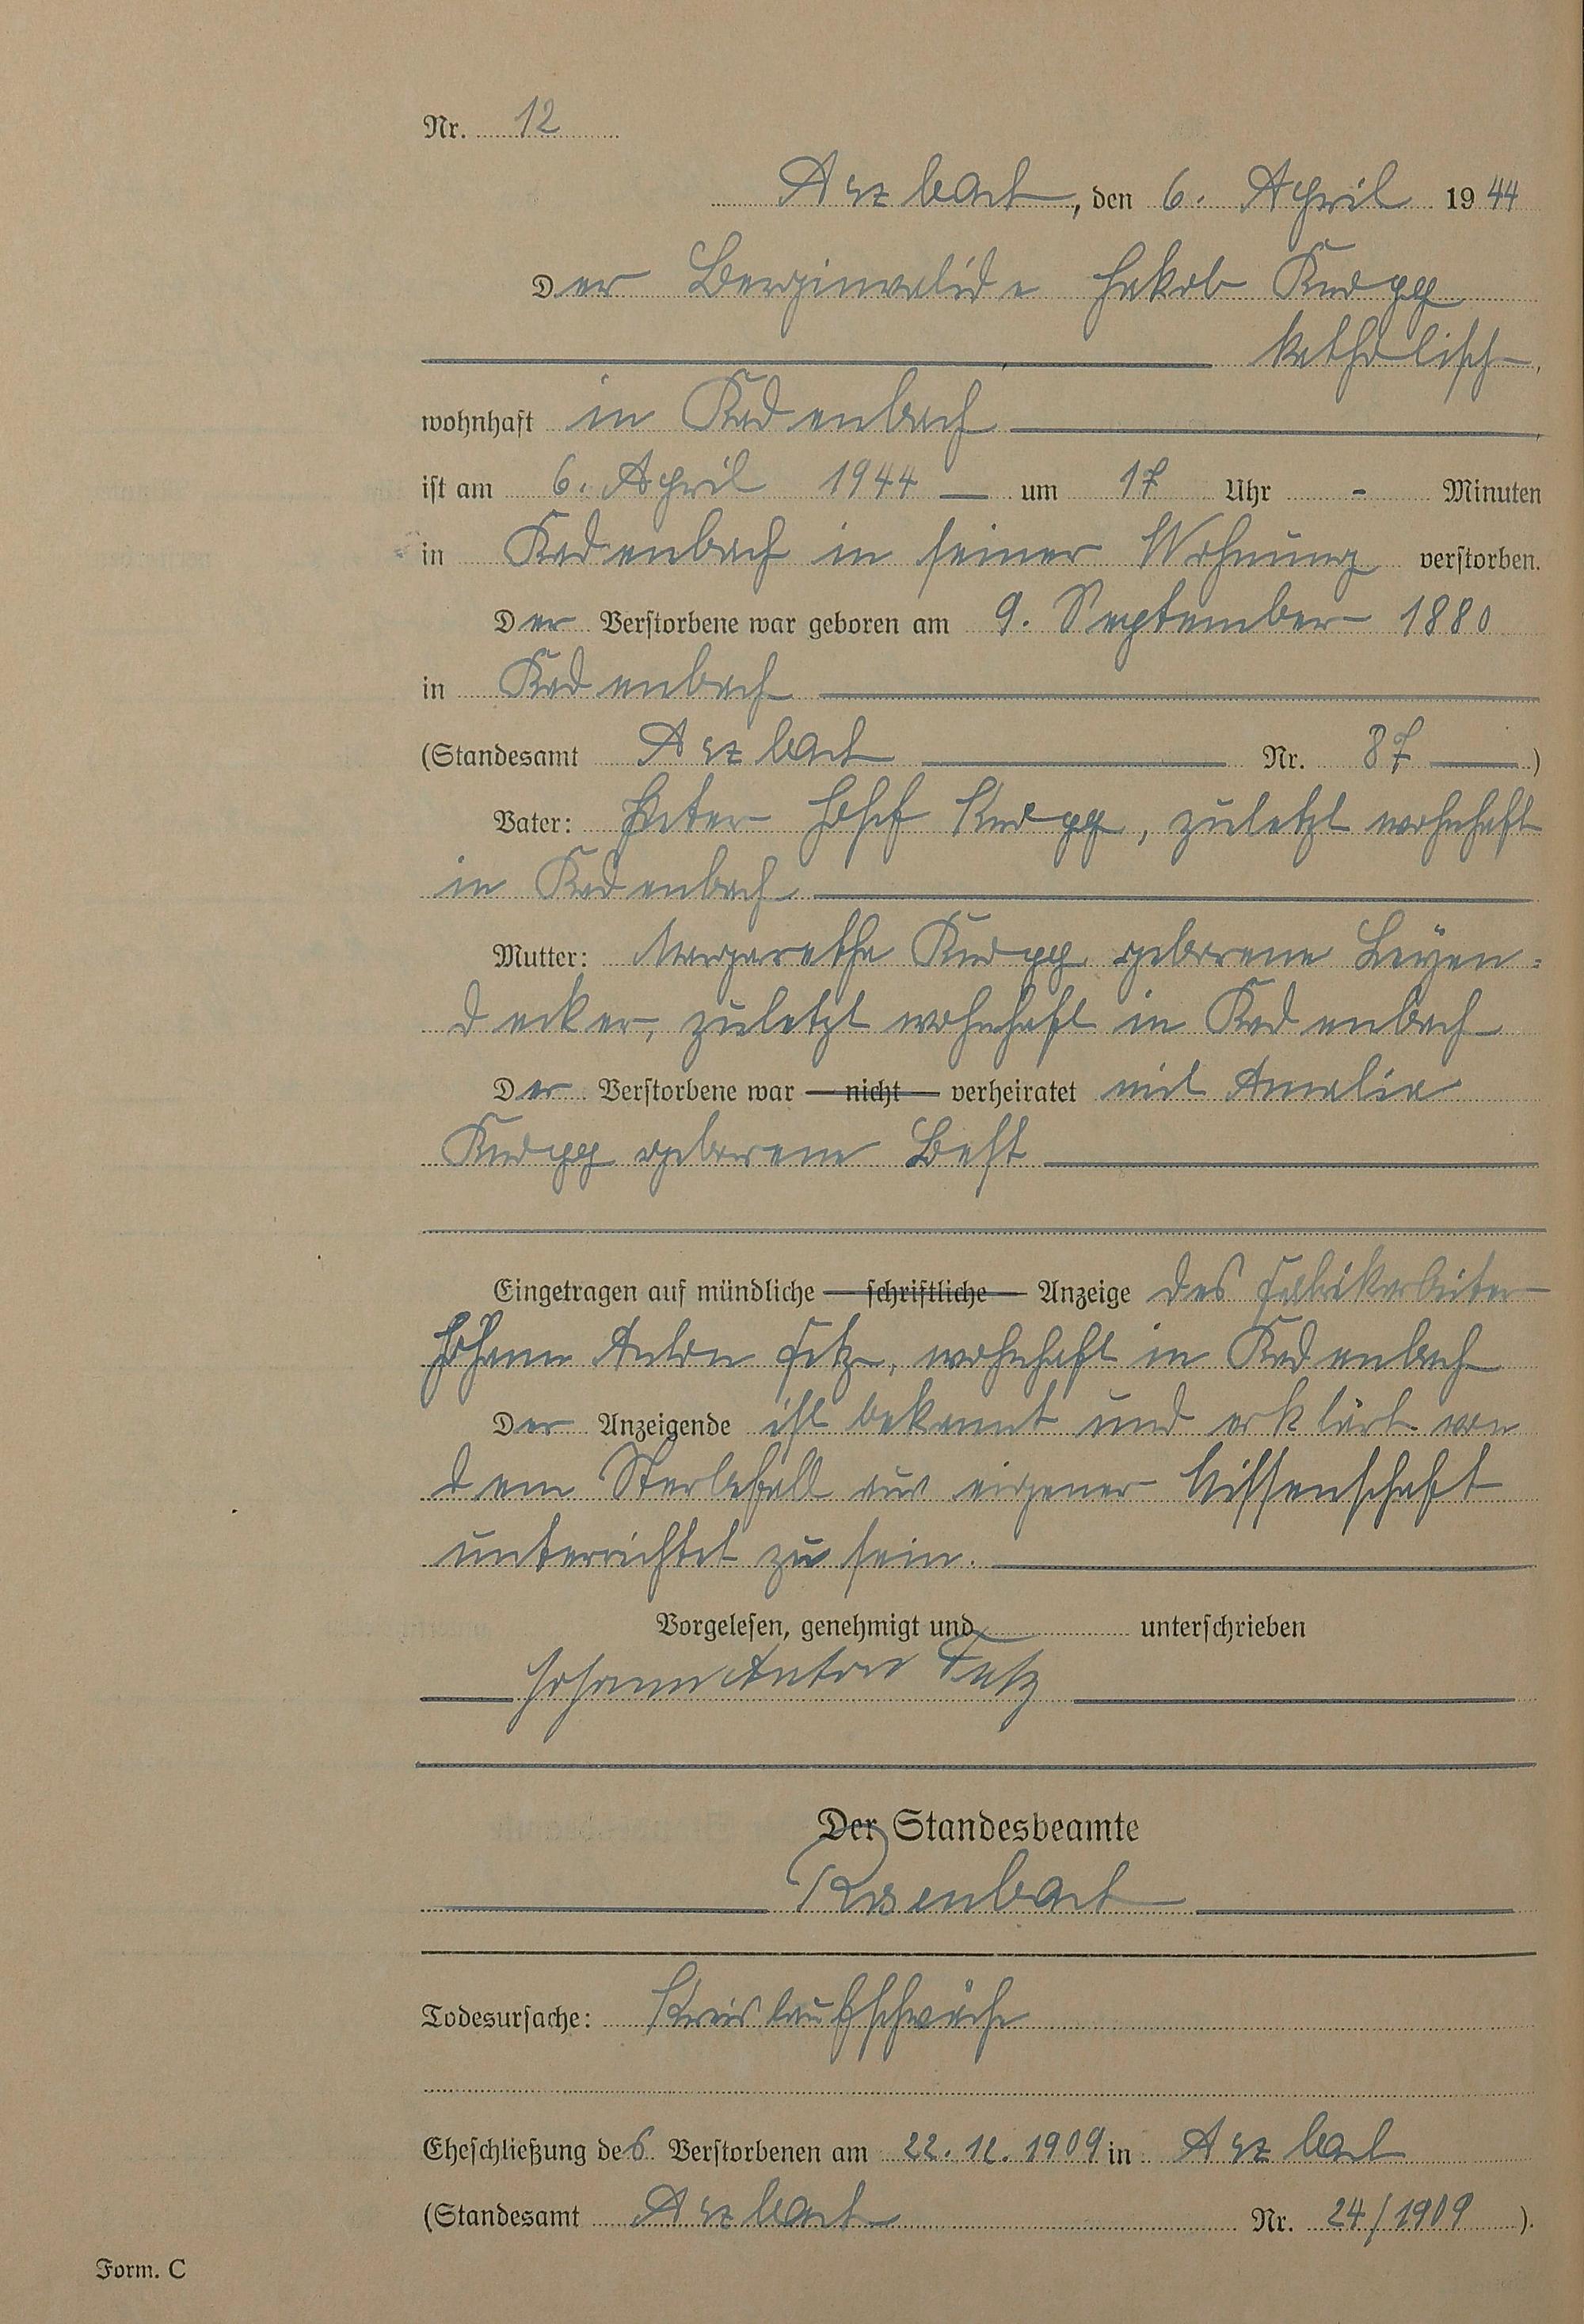 Nr. 12
Arzbach, den 6. April 1944
Der Berginvalide Jakob Knopp
katholisch,
wohnhaft in Kadenbach
ist am 6. April 1944 — um 17 Uhr - Minuten
in Kadenbach in seiner Wohnung verstorben.
Der Verstorbene war geboren am 9. September 1880
in Kadenbach
(Standesamt Arzbach Nr. 87)
Vater: Peter Josef Knopp, zuletzt wohnhaft
in Kadenbach
Mutter: Margaretha Knopp geborene Leyen=
decker, zuletzt wohnhaft in Kadenbach
Der Verstorbene war — nicht — verheiratet mit Amalia
Knopp geborene Best
Eingetragen auf mündliche — schriftliche — Anzeige des Fabrikarbeiter
Johann Anton Fetz, wohnhaft in Kadenbach
Der Anzeigende ist bekannt und erklärt von
dem Sterbefall aus eigener Wissenschaft
unterrichtet zu sein.
Vorgelesen, genehmigt und unterschrieben
Johann Anton Fetz
Der Standesbeamte
Rosenbach
Todesursache: Kreislaufschwäche
Eheschließung des Verstorbenen am 22.12.1909 in Arzbach
(Standesamt Arzbach Nr. 24/1909).
Form. C